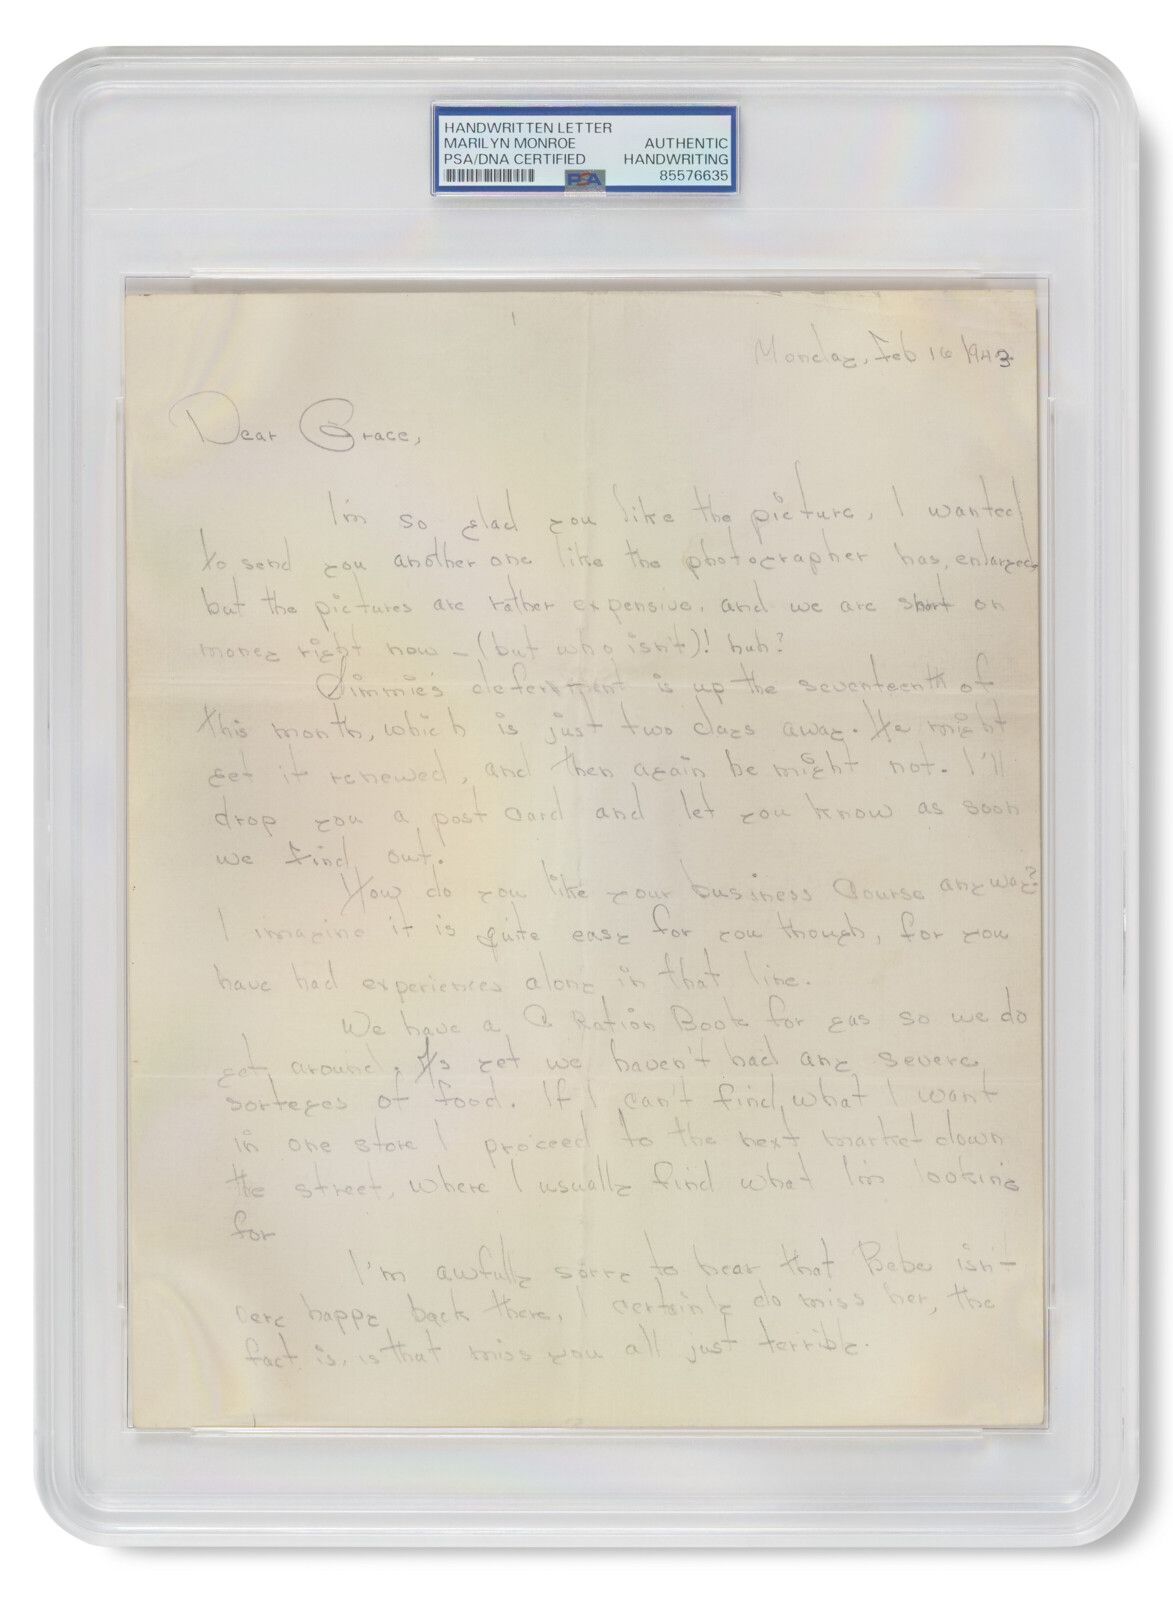 HANDWRITTEN LETTER
MARILYN MONROE AUTHENTIC
PSA/DNA CERTIFIED HANDWRITING
PSA 85576635
Monday, Feb 16 1943
Dear Grace,
I'm so glad you like the picture, I wanted
to send you another one like the photographer has, enlarged
but the pictures are rather expensive, and we are short on
money right now – (but who isn't)! huh?
Jimmie's deferment is up the seventeenth of
this month, which is just two days away. He might
get it renewed, and then again he might not. I'll
drop you a post card and let you know as soon
we find out.
How do you like your business Course anyway?
I imagine it is quite easy for you though, for you
have had experiences along in that line.
We have a C Ration Book for gas so we do
get around. As yet we haven't had any severe
sorteges of food. If I can't find, what I want
in one store I proceed to the next market down
the street, where I usually find what I'm looking
for
I'm awfully sorry to hear that Bebe isn't
very happy back there, I certainly do miss her, the
fact is, is that miss you all just terrible.